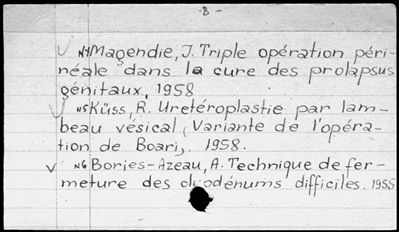 - 8 -
N4 Magendie, J. Triple opération péri-
néale dans la cure des prolapsus
génitaux, 1958
N5 Küss, R. Uretéroplastie par lam-
beau vésical (Variante de l'opéra-
tion de Boari). 1958.
N6 Bories-Azeau, A. Technique de fer-
meture des duodénums difficiles. 1955